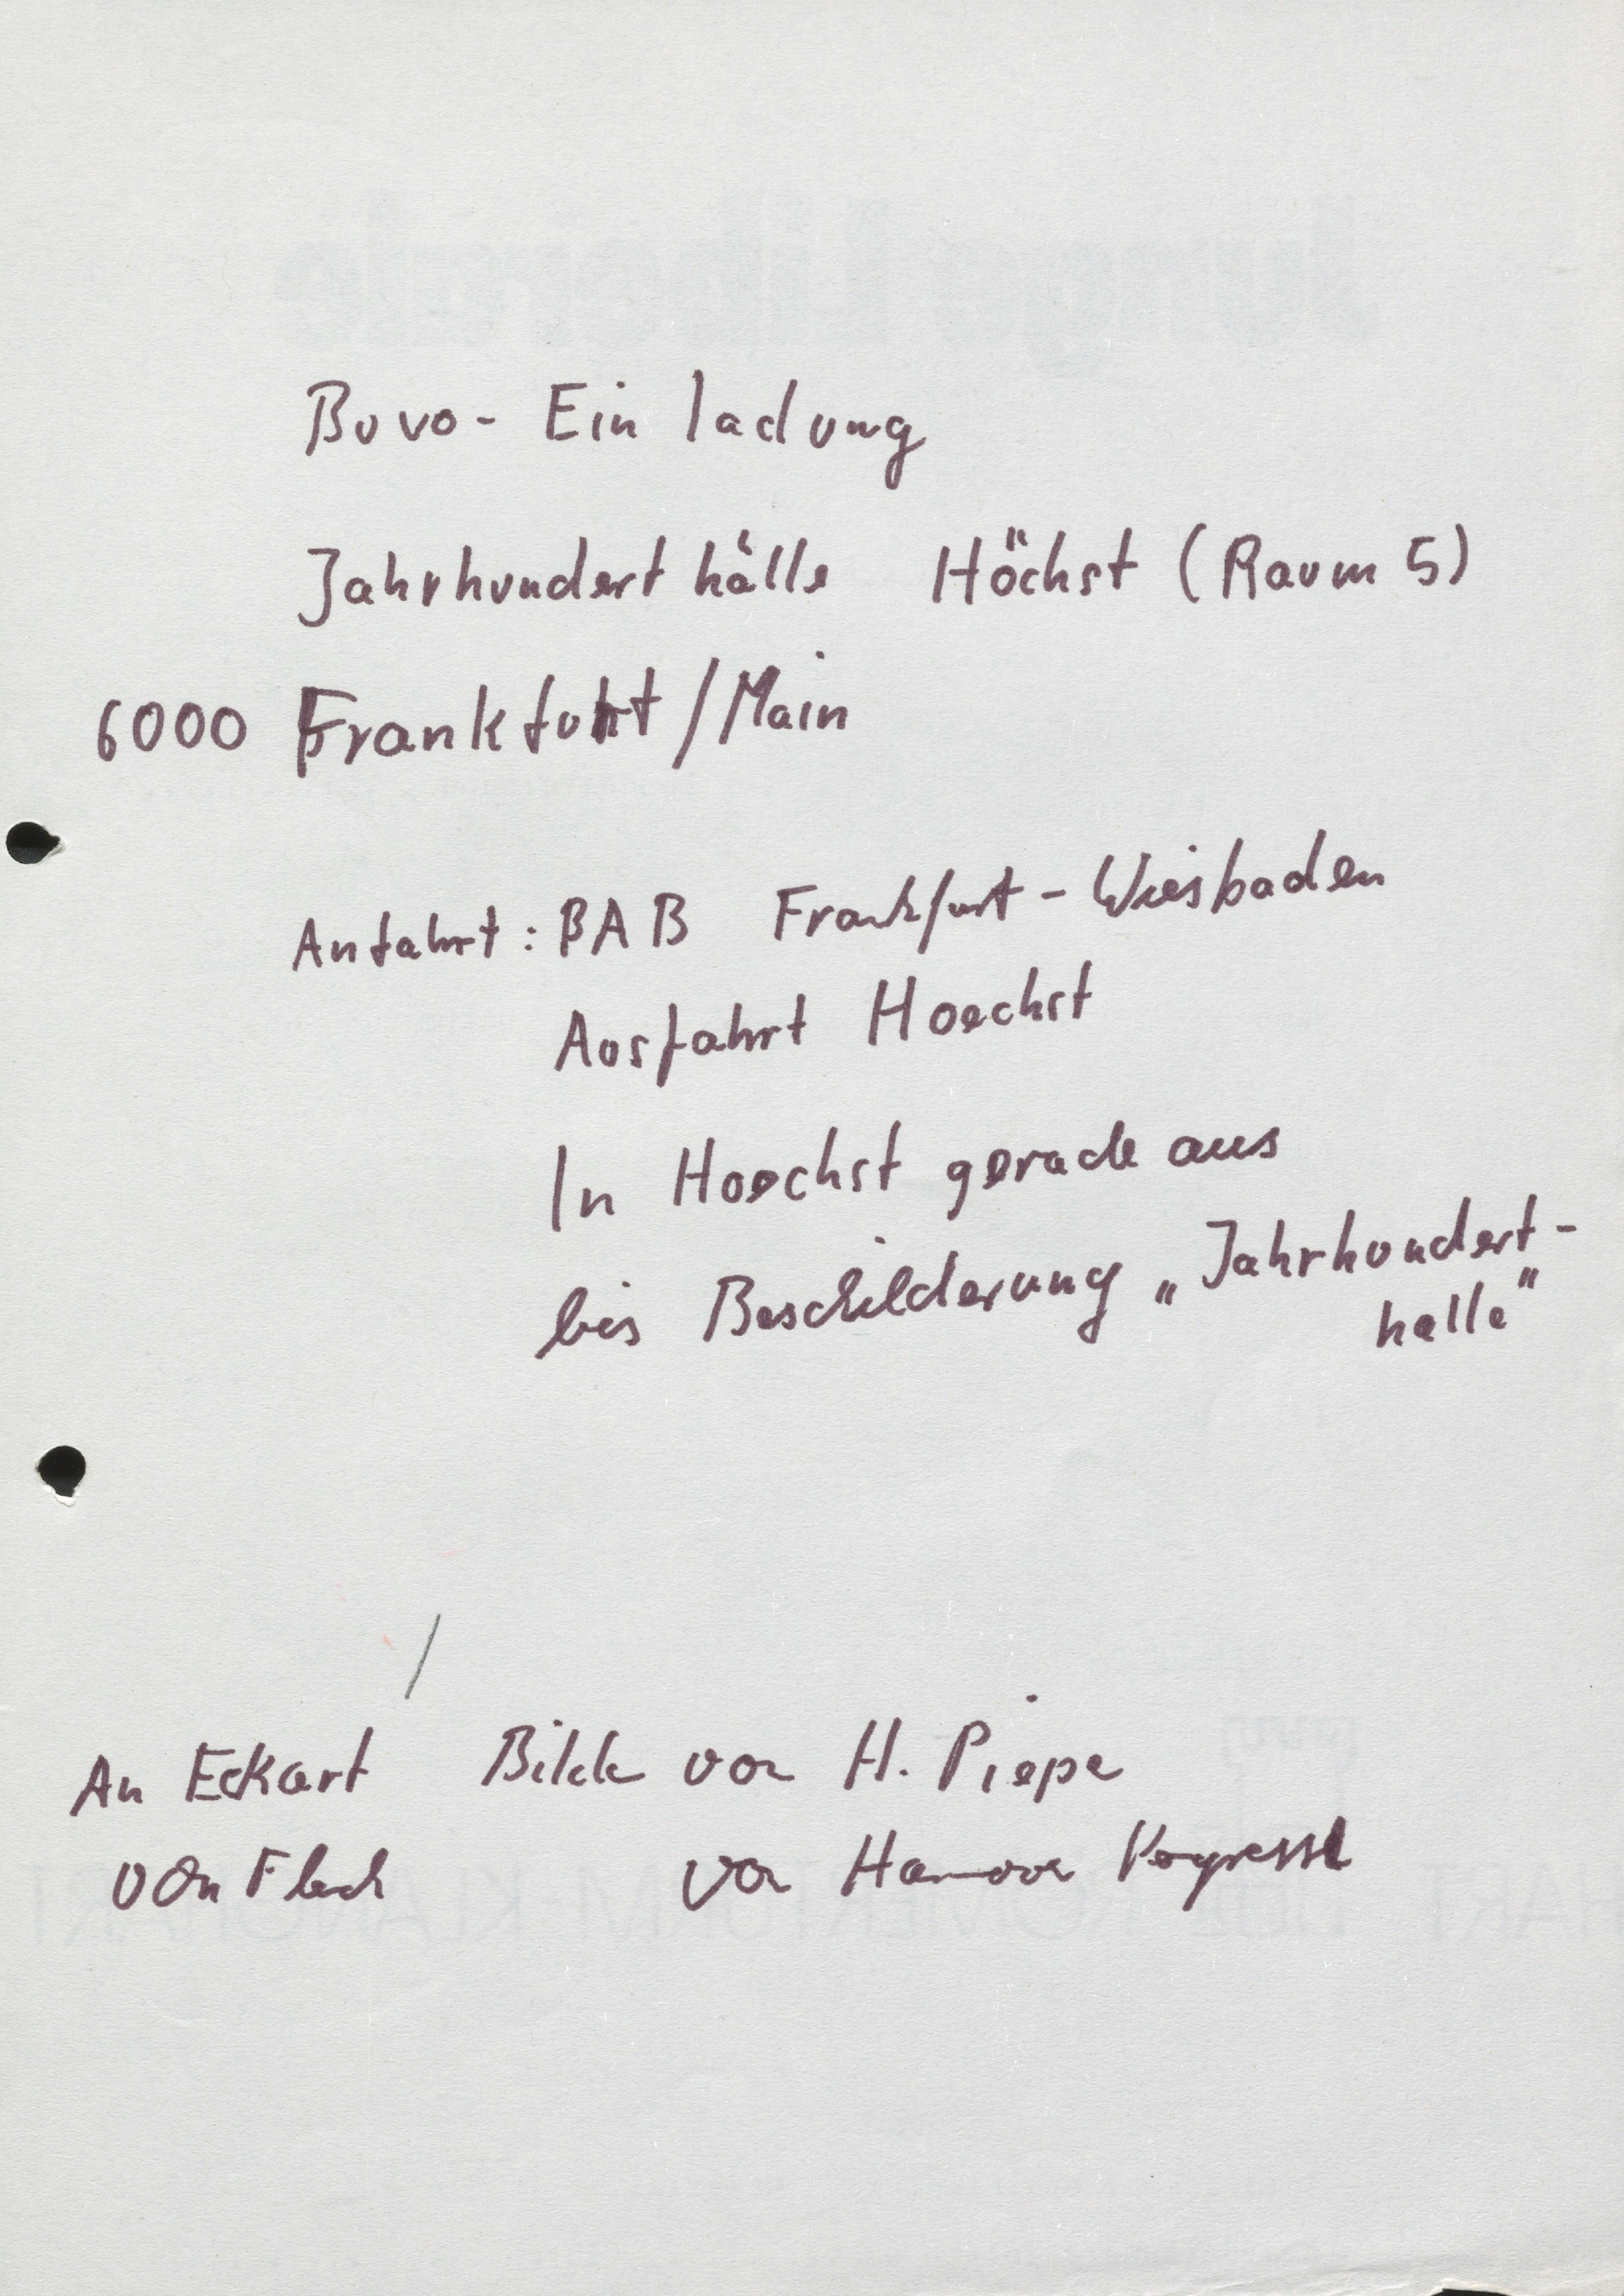 Buvo- Einladung
Jahrhunderthalle Höchst (Raum 5)
6000 Frankfurt/Main
Anfahrt: BAB Frankfurt - Wiesbaden
Ausfahrt Hoechst
In Hoechst gerade aus
bis Beschilderung „Jahrhundert-
halle"
An Eckart Bilder von H. Piepe
von Flach von Hannover